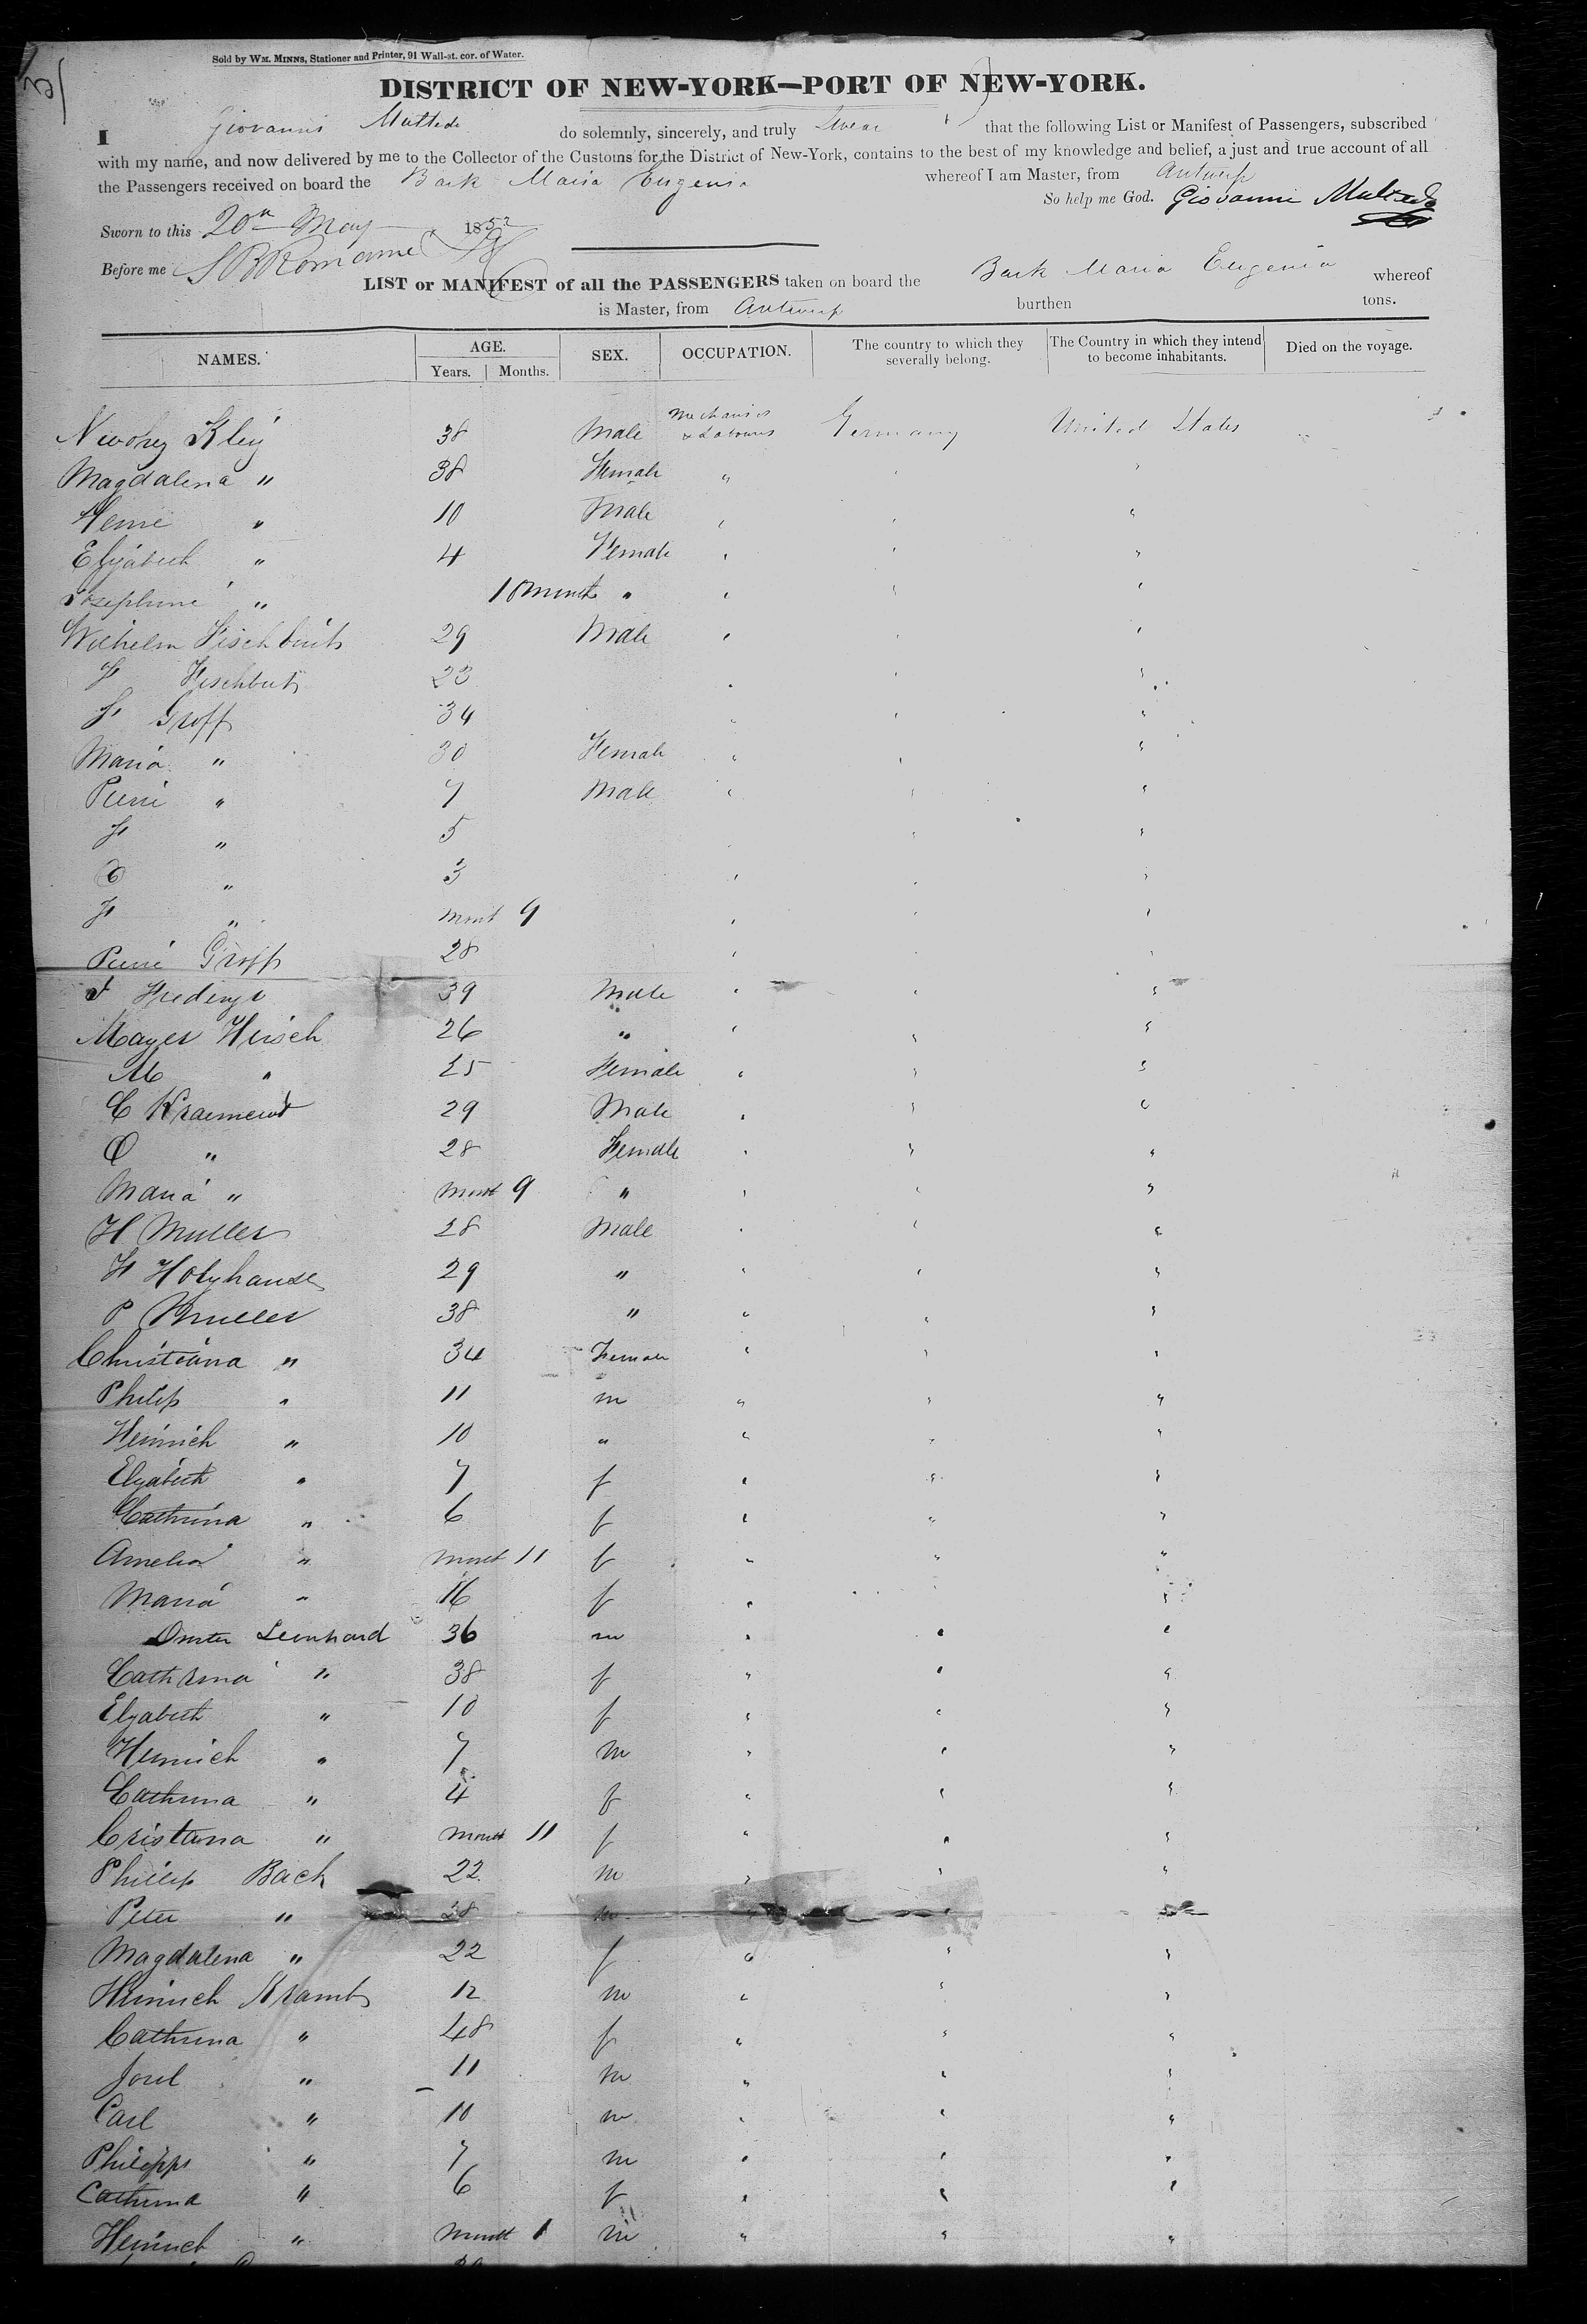 Sold by WM. MINNS, Stationer and Printer, 91 Wall-st. cor. of Water.
DISTRICT OF NEW-YORK—PORT OF NEW-YORK.
I Giovanni do solemnly, sincerely, and truly Swear that the following List or Manifest of Passengers, subscribed
with my name, and now delivered by me to the Collector of the Customs for the District of New-York, contains to the best of my knowledge and belief, a just and true account of all
the Passengers received on board the Bark Maria Eugenia whereof I am Master, from Antwerp
So help me God. Giovanni
Sworn to this 20th May 185
Before me
LIST or MANIFEST of all the PASSENGERS taken on board the Bark Maria Eugenia whereof
is Master, from Antwerp burthen tons.
NAMES. AGE. Years. Months. SEX. OCCUPATION. The country to which they severally belong. The Country in which they intend to become inhabitants. Died on the voyage.
38 Male Mechanics & Labourers Germany United States
Magdalena " 38 Female "
" 10 Male
Elizabeth " 4 Female
Josephine " 10 month "
Wilhelm 29 Male
23
Groff 34
Maria " 30 Female
Pierre " 7 Male
" 5
" 3
" Mont 9
Pierre Groff 28
39 Male
Mayer Hirsch 26 "
M " 25 Female
C 29 Male
" 28 Female
Maria " Mont 9 "
H Muller 28 Male
29 "
P Muller 38 "
Christiana " 34 Female
Philip " 11 m
Heinrich " 10 "
Elyabeth " 7 f
Cathrina " 6 f
Amelia " Mont 11 f
Maria " 16 f
Leonhard 36 m
Cathrina " 38 f
Elyabeth " 10 f
Heinrich " 7 m
Cathrina " 4 f
Cristiana " Mont 11 f
Phillip Bach 22 m
Peter " 28 m
Magdalena " 22 f
Heinrich 12 m
Cathrina " 48 f
" 11 m
Carl " 10 m
Philipps " 7 m
Cathrina " 6 f
Heinrich " Mont 1 m